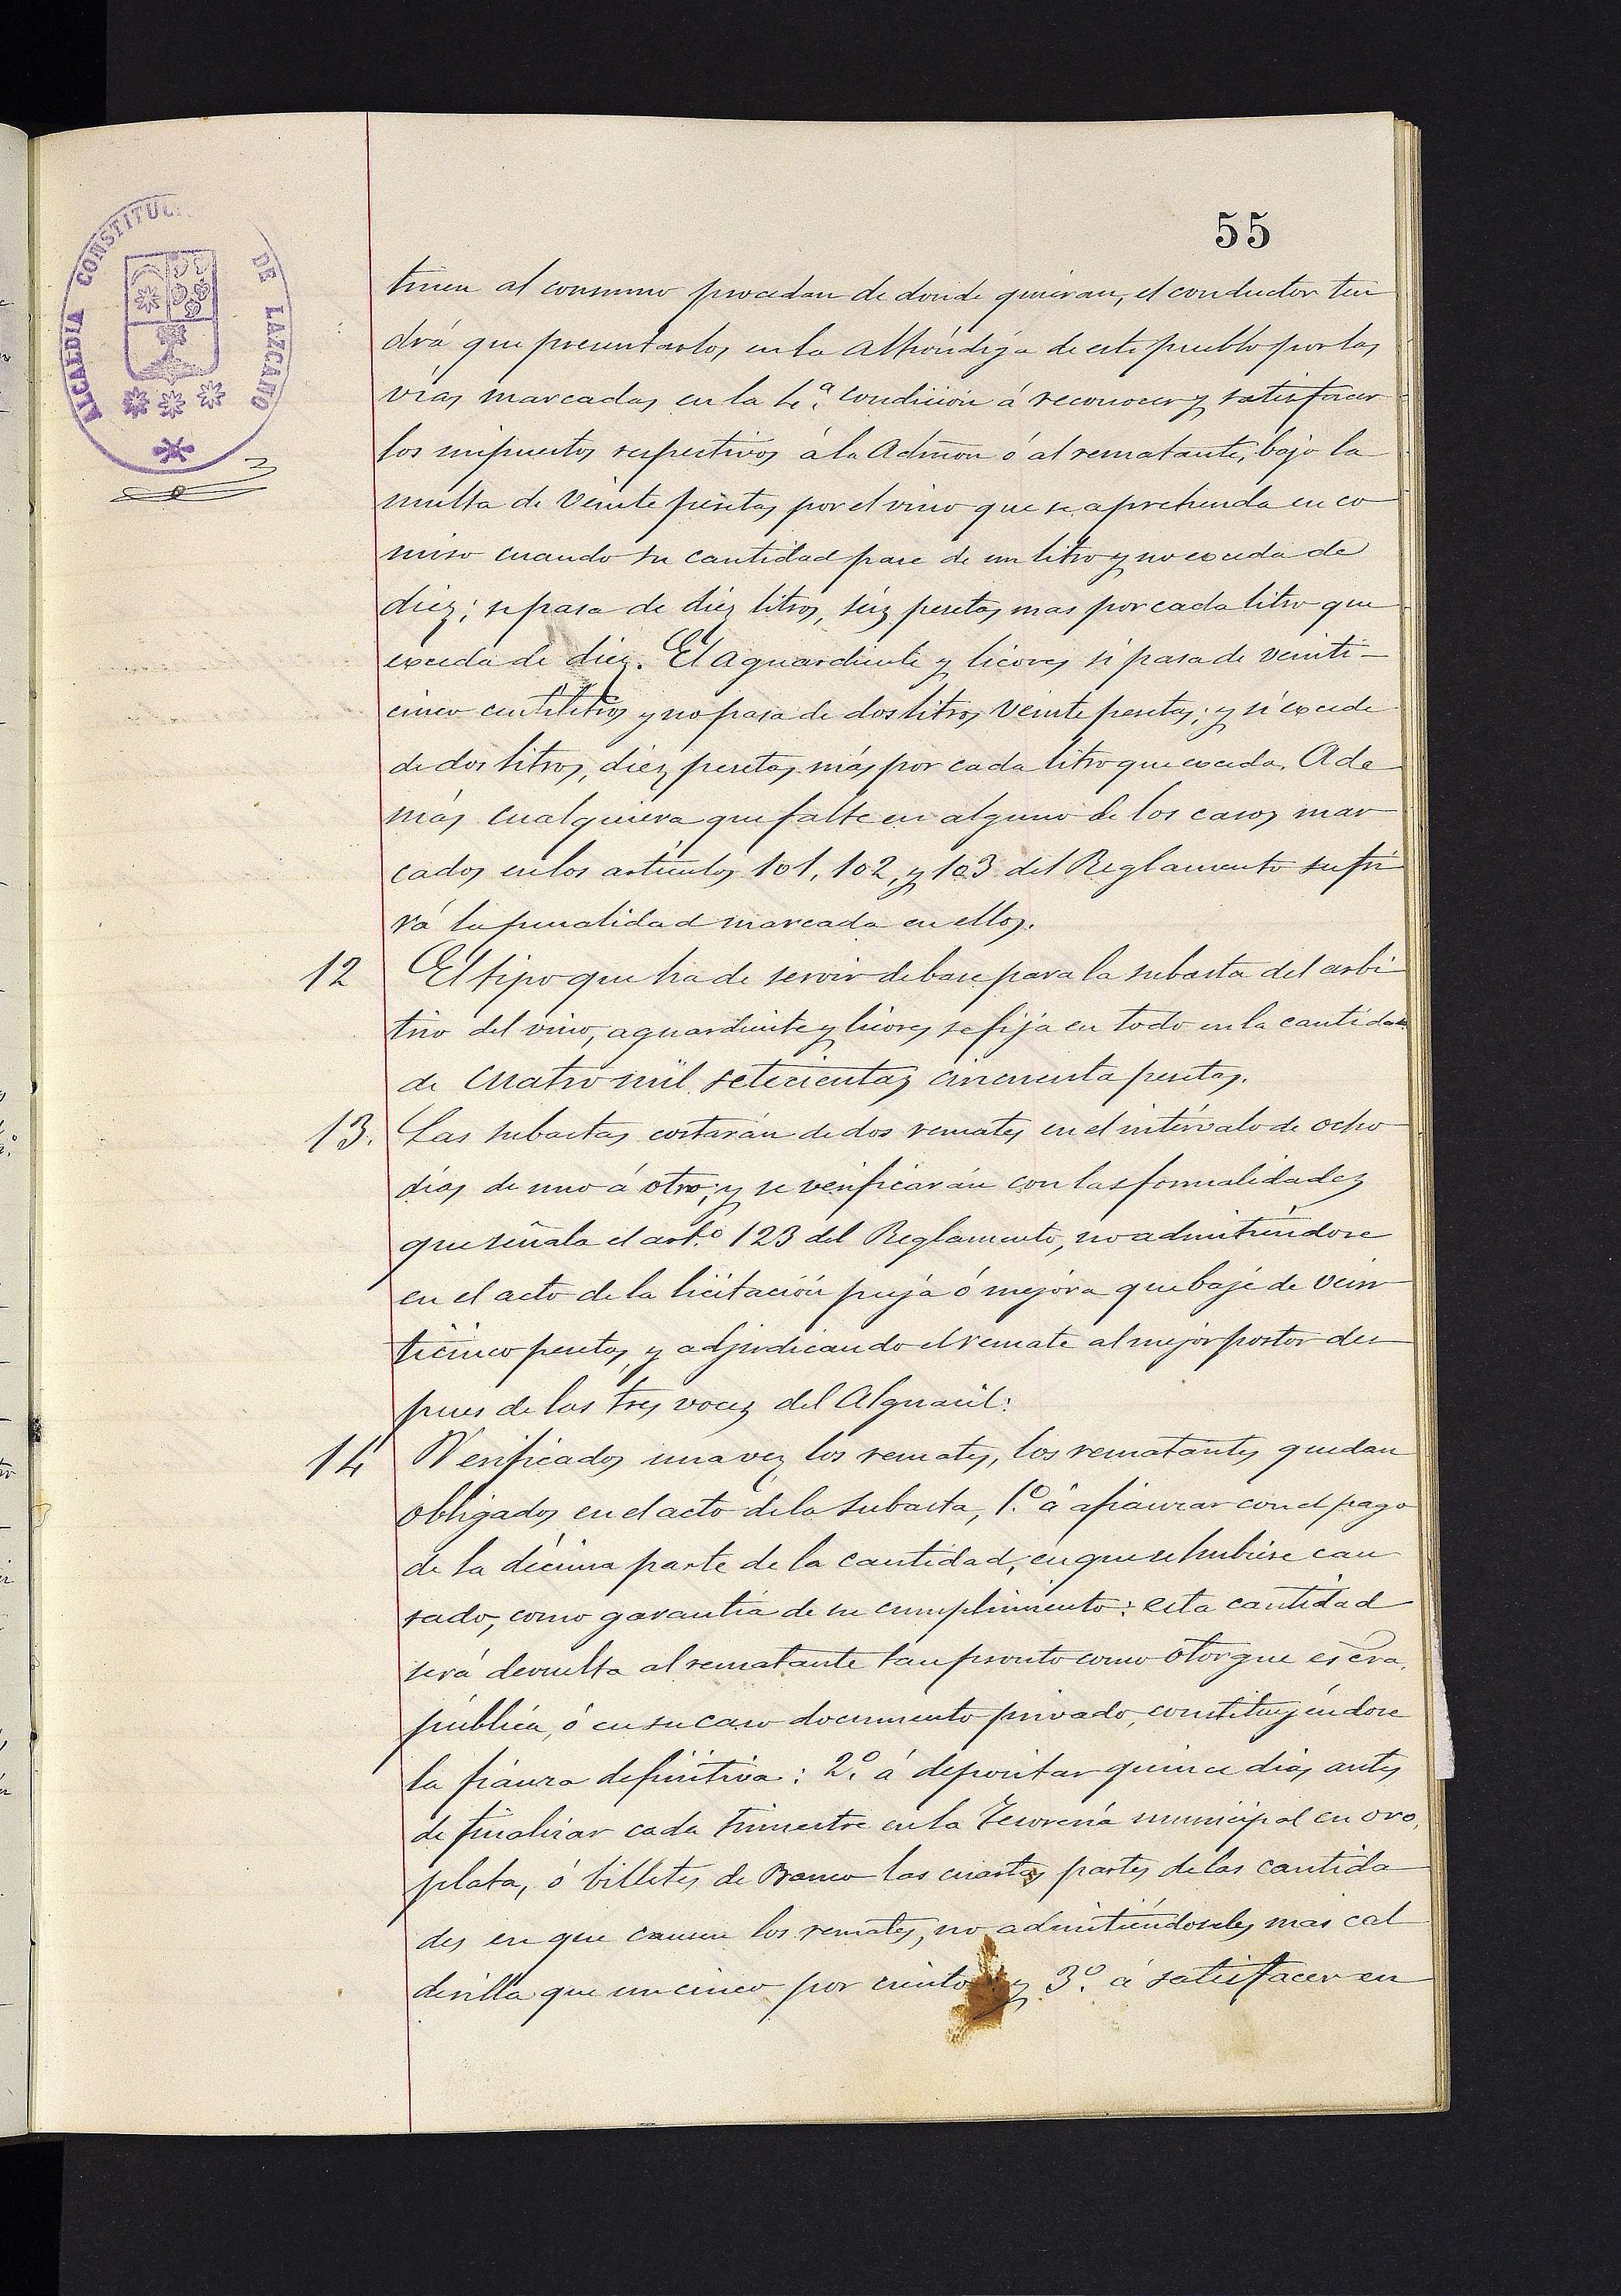 55
ALCALDIA CONSTITUC DE LAZCANO
tinen al consumo procedan de donde quieran, el conductor ten
drá que presentarlos en la Alhóndiga de este pueblo por las
vías marcadas en la 4.ª condición á reconocer y satisfacer
los impuestos respectivos á la Admon ó al rematante, bajo la
multa de veinte pesetas por el vino que se aprehenda en co
miso cuando su cantidad pase de un litro y no exceda de
diez; si pasa de diez litros, seis pesetas mas por cada litro que
exceda de diez. El aguardiente y licores si pasa de veinti-
cinco centilitros y no pasa de dos litros veinte pesetas; y si excede
de dos litros, diez pesetas más por cada litro que exceda. Ade
más cualquiera que falte en alguno de los casos mar
cados en los artículos 101, 102, y 103 del Reglamento sufri
rá la penalidad marcada en ellos.
12 El tipo que ha de servir de base para la subasta del arbi
trio del vino, aguardiente y licores se fija en todo en la cantidad
de Cuatro mil setecientas cincuenta pesetas.
13. Las subastas costarán de dos remates en el intérvalo de ocho
días de uno á otro; y se verificarán con las formalidades
que señala el art.º 123 del Reglamento, no admitiéndose
en el acto de la licitación puja ó mejora que baje de vein
ticinco pesetas, y adjudicando el remate al mejor postor des
pues de las tres voces del Alguacil:
14 Verificados una vez los remates, los rematantes quedan
obligados en el acto de la subasta, 1.º á afianzar con el pago
de la décima parte de la cantidad, en que se hubiese cau
sado, como garantía de su cumplimiento: esta cantidad
será devuelta al rematante tan pronto como otorgue escra.
pública, ó en su caso documento privado, constituyéndose
la fianza definitiva: 2.º á depositar quince días antes
de finalizar cada trimestre en la Tesorería municipal en oro,
plata, ó billetes de Banco las cuartas partes de las cantida
des en que causen los remates, no admitiéndoseles mas cal
derilla que un cinco por ciento y 3.º á satisfacer en